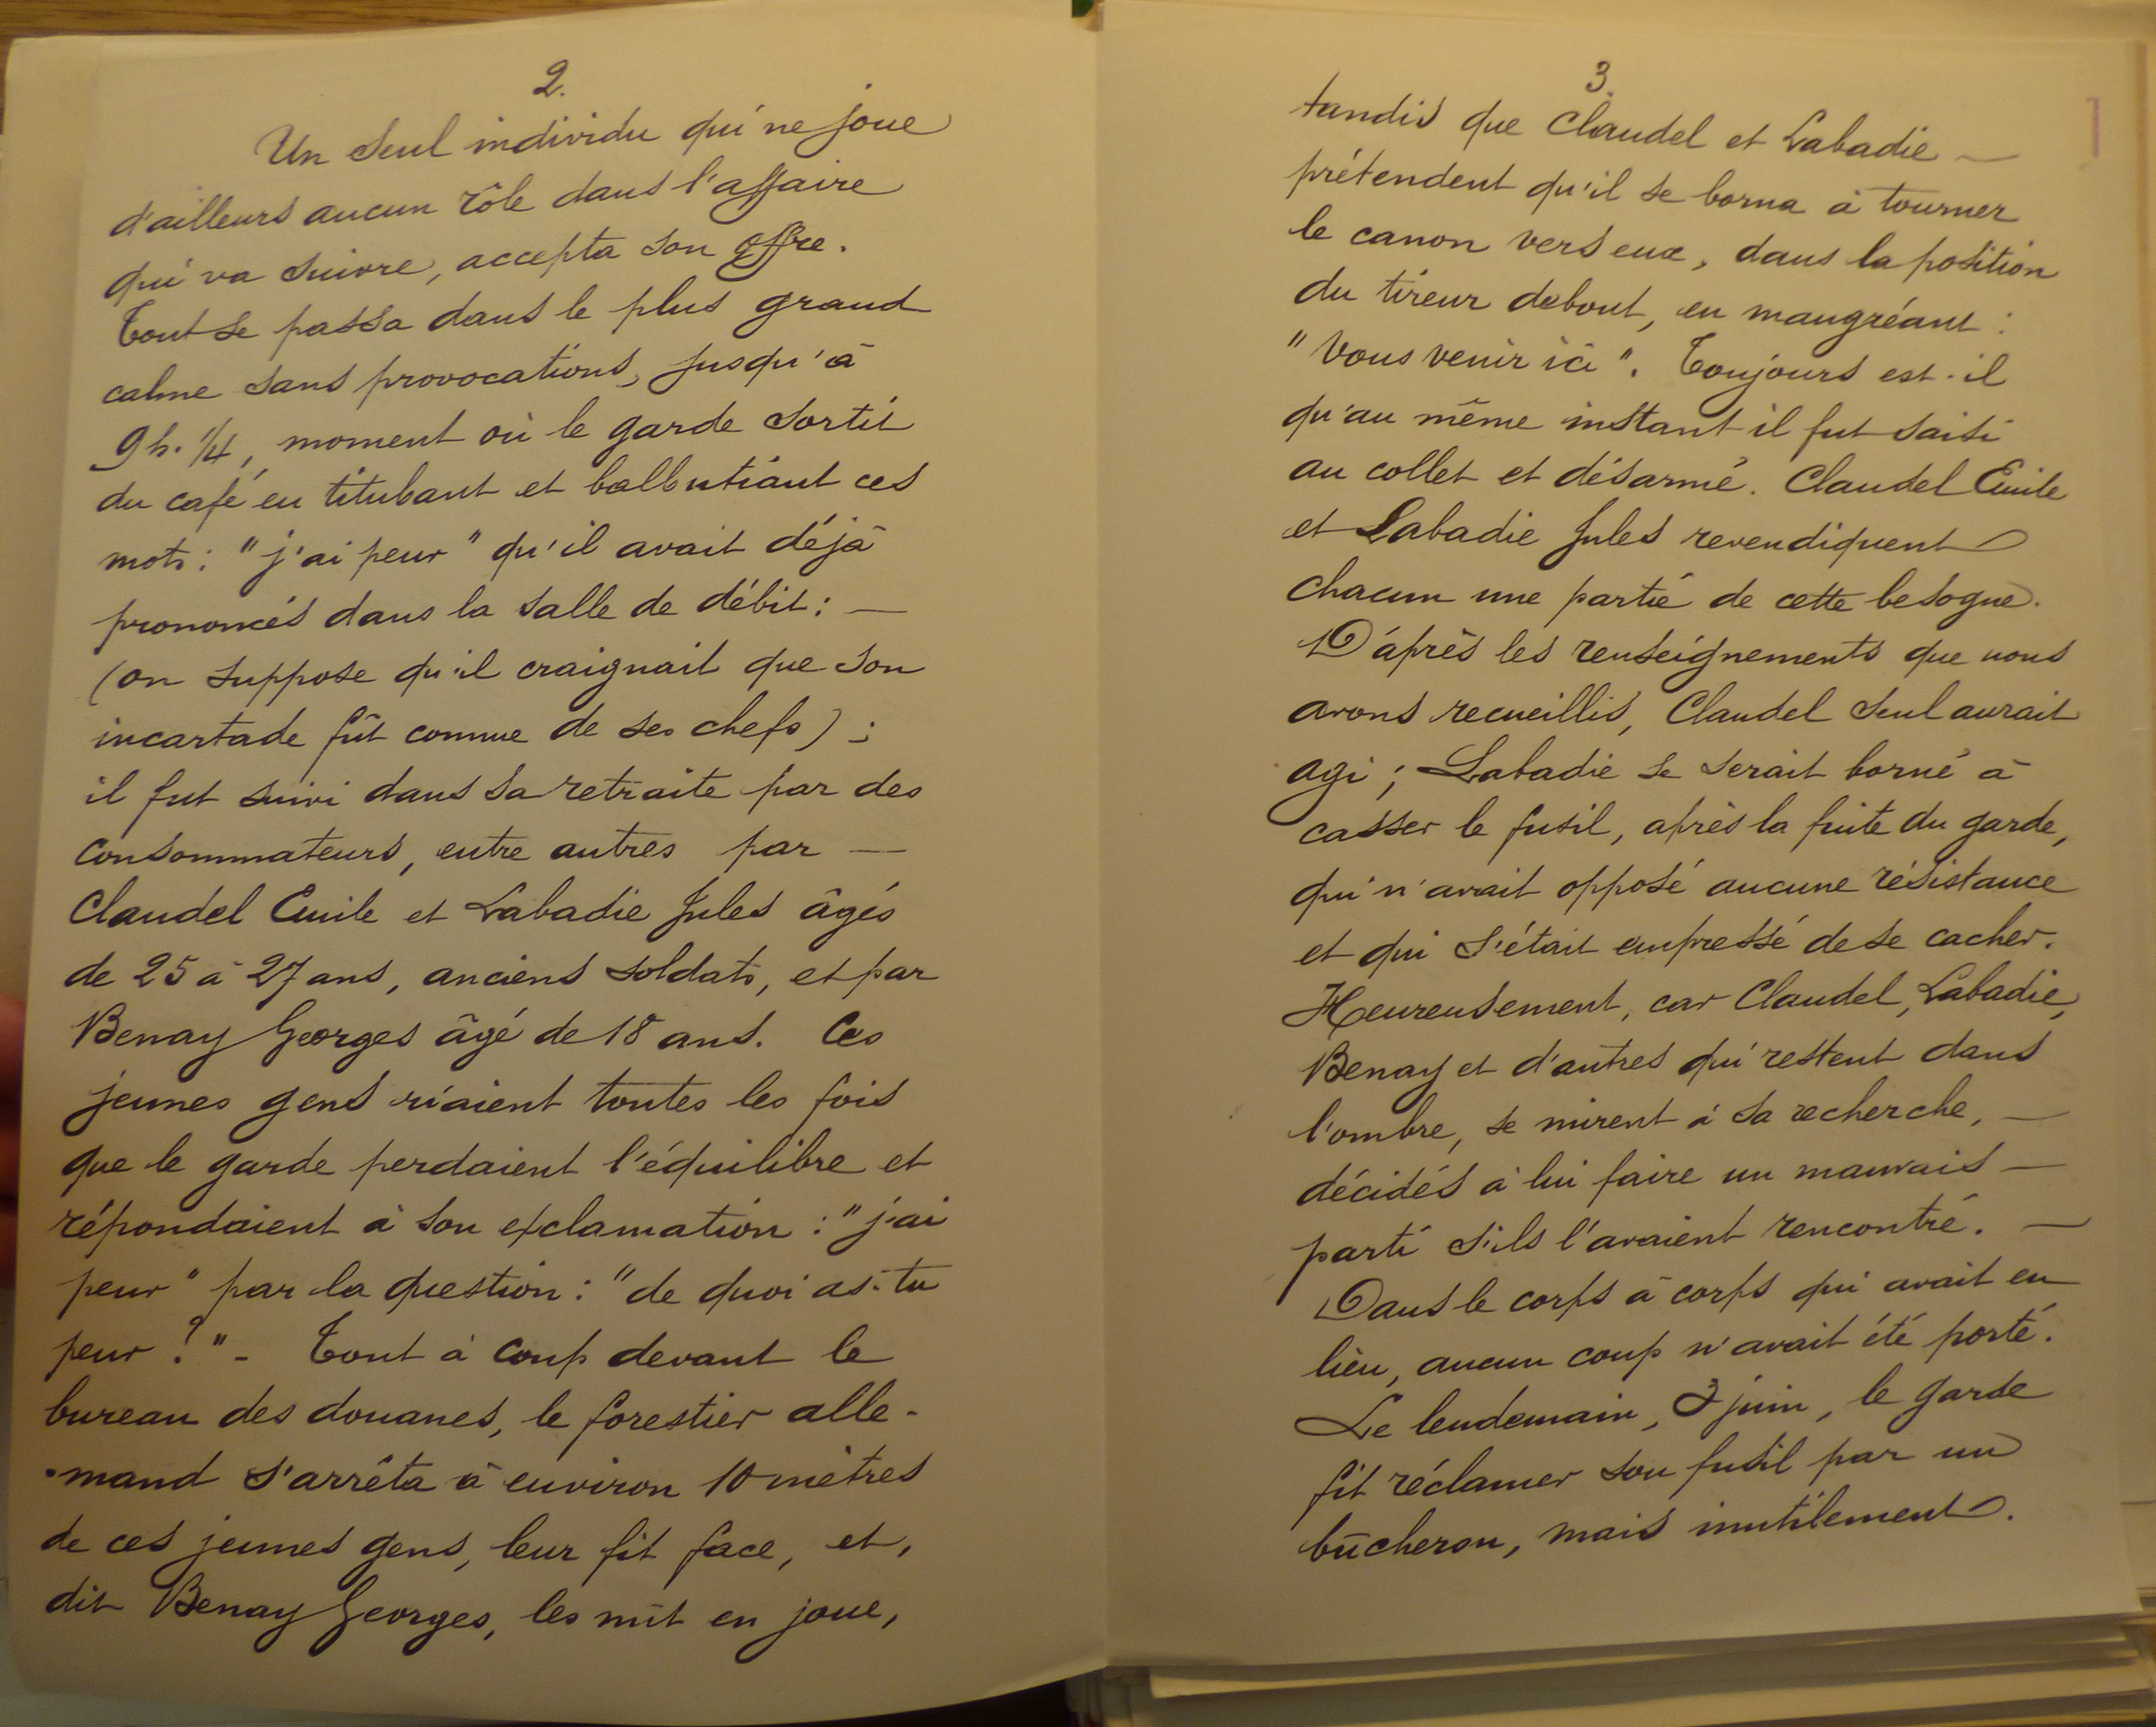 2.
Un seul individu qui ne joue
d'ailleurs aucun rôle dans l'affaire
qui va suivre, accepta son offre.
Tout se passa dans le plus grand
calme sans provocations, jusqu'à
9 h. 1/4, moment où le garde sortit
du café en titubant et balbutiant ces
mots : "j'ai peur" qu'il avait déjà
prononcés dans la salle de débit : —
(on suppose qu'il craignait que son
incartade fût connue de ses chefs) ;
il fut suivi dans sa retraite par des
consommateurs, entre autres par —
Claudel Emile et Labadie Jules âgés
de 25 à 27 ans, anciens soldats, et par
Benay Georges âgé de 18 ans. Ces
jeunes gens riaient toutes les fois
que le garde perdaient l'équilibre et
répondaient à son exclamation : "j'ai
peur" par la question : "de quoi as-tu
peur ?" - Tout à coup devant le
bureau des douanes, le forestier alle-
-mand s'arrêta à environ 10 mètres
de ces jeunes gens, leur fit face, et,
dit Benay Georges, les mit en joue,
3.
tandis que Claudel et Labadie —
prétendent qu'il se borna à tourner
le canon vers eux, dans la position
du tireur debout, en maugréant :
"Vous venir ici". Toujours est-il
qu'au même instant il fut saisi
au collet et désarmé. Claudel Emile
et Labadie Jules revendiquent
chacun une partie de cette besogne.
D'après les renseignements que nous
avons recueillis, Claudel seul aurait
agi ; Labadie se serait borné à
casser le fusil, après la fuite du garde,
qui n'avait opposé aucune résistance
et qui s'était empressé de se cacher.
Heureusement, car Claudel, Labadie,
Benay et d'autres qui restent dans
l'ombre, se mirent à sa recherche, —
décidés à lui faire un mauvais —
parti s'ils l'avaient rencontré. —
Dans le corps à corps qui avait eu
lieu, aucun coup n'avait été porté.
Le lendemain, 3 juin, le garde
fit réclamer son fusil par un
bûcheron, mais inutilement.